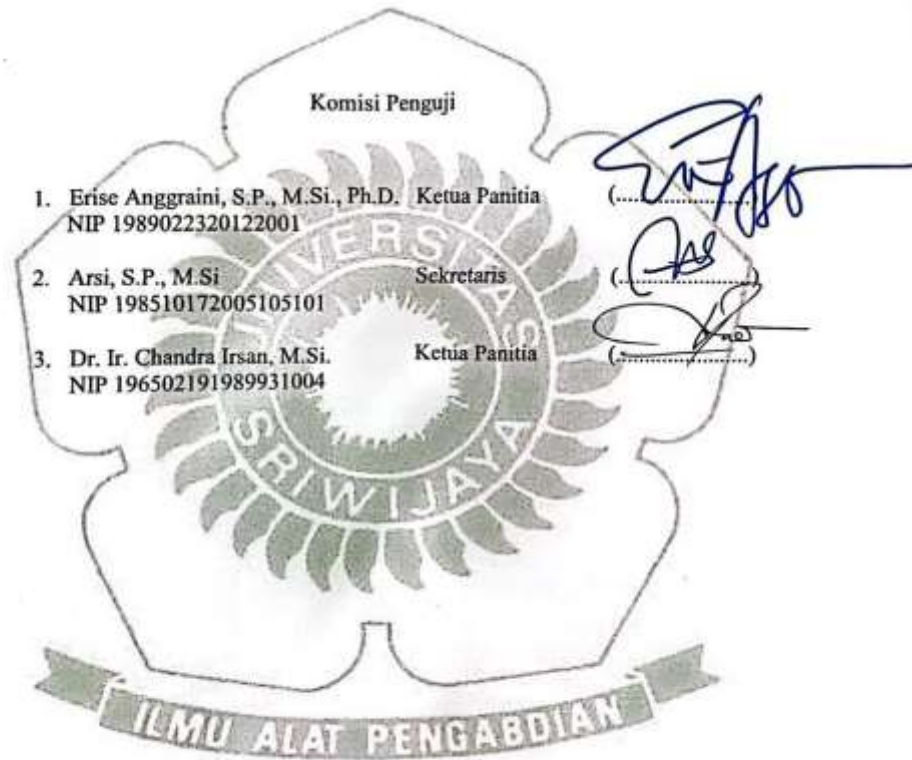 Komisi Penguji
1. Erise Anggraini, S.P., M.Si., Ph.D. Ketua Panitia (....................)
NIP 1989022320122001
2. Arsi, S.P., M.Si Sekretaris (....................)
NIP 198510172005105101
3. Dr. Ir. Chandra Irsan, M.Si. Ketua Panitia (....................)
NIP 196502191989931004
UNIVERSITAS
SRIWIJAYA
ILMU ALAT PENGABDIAN